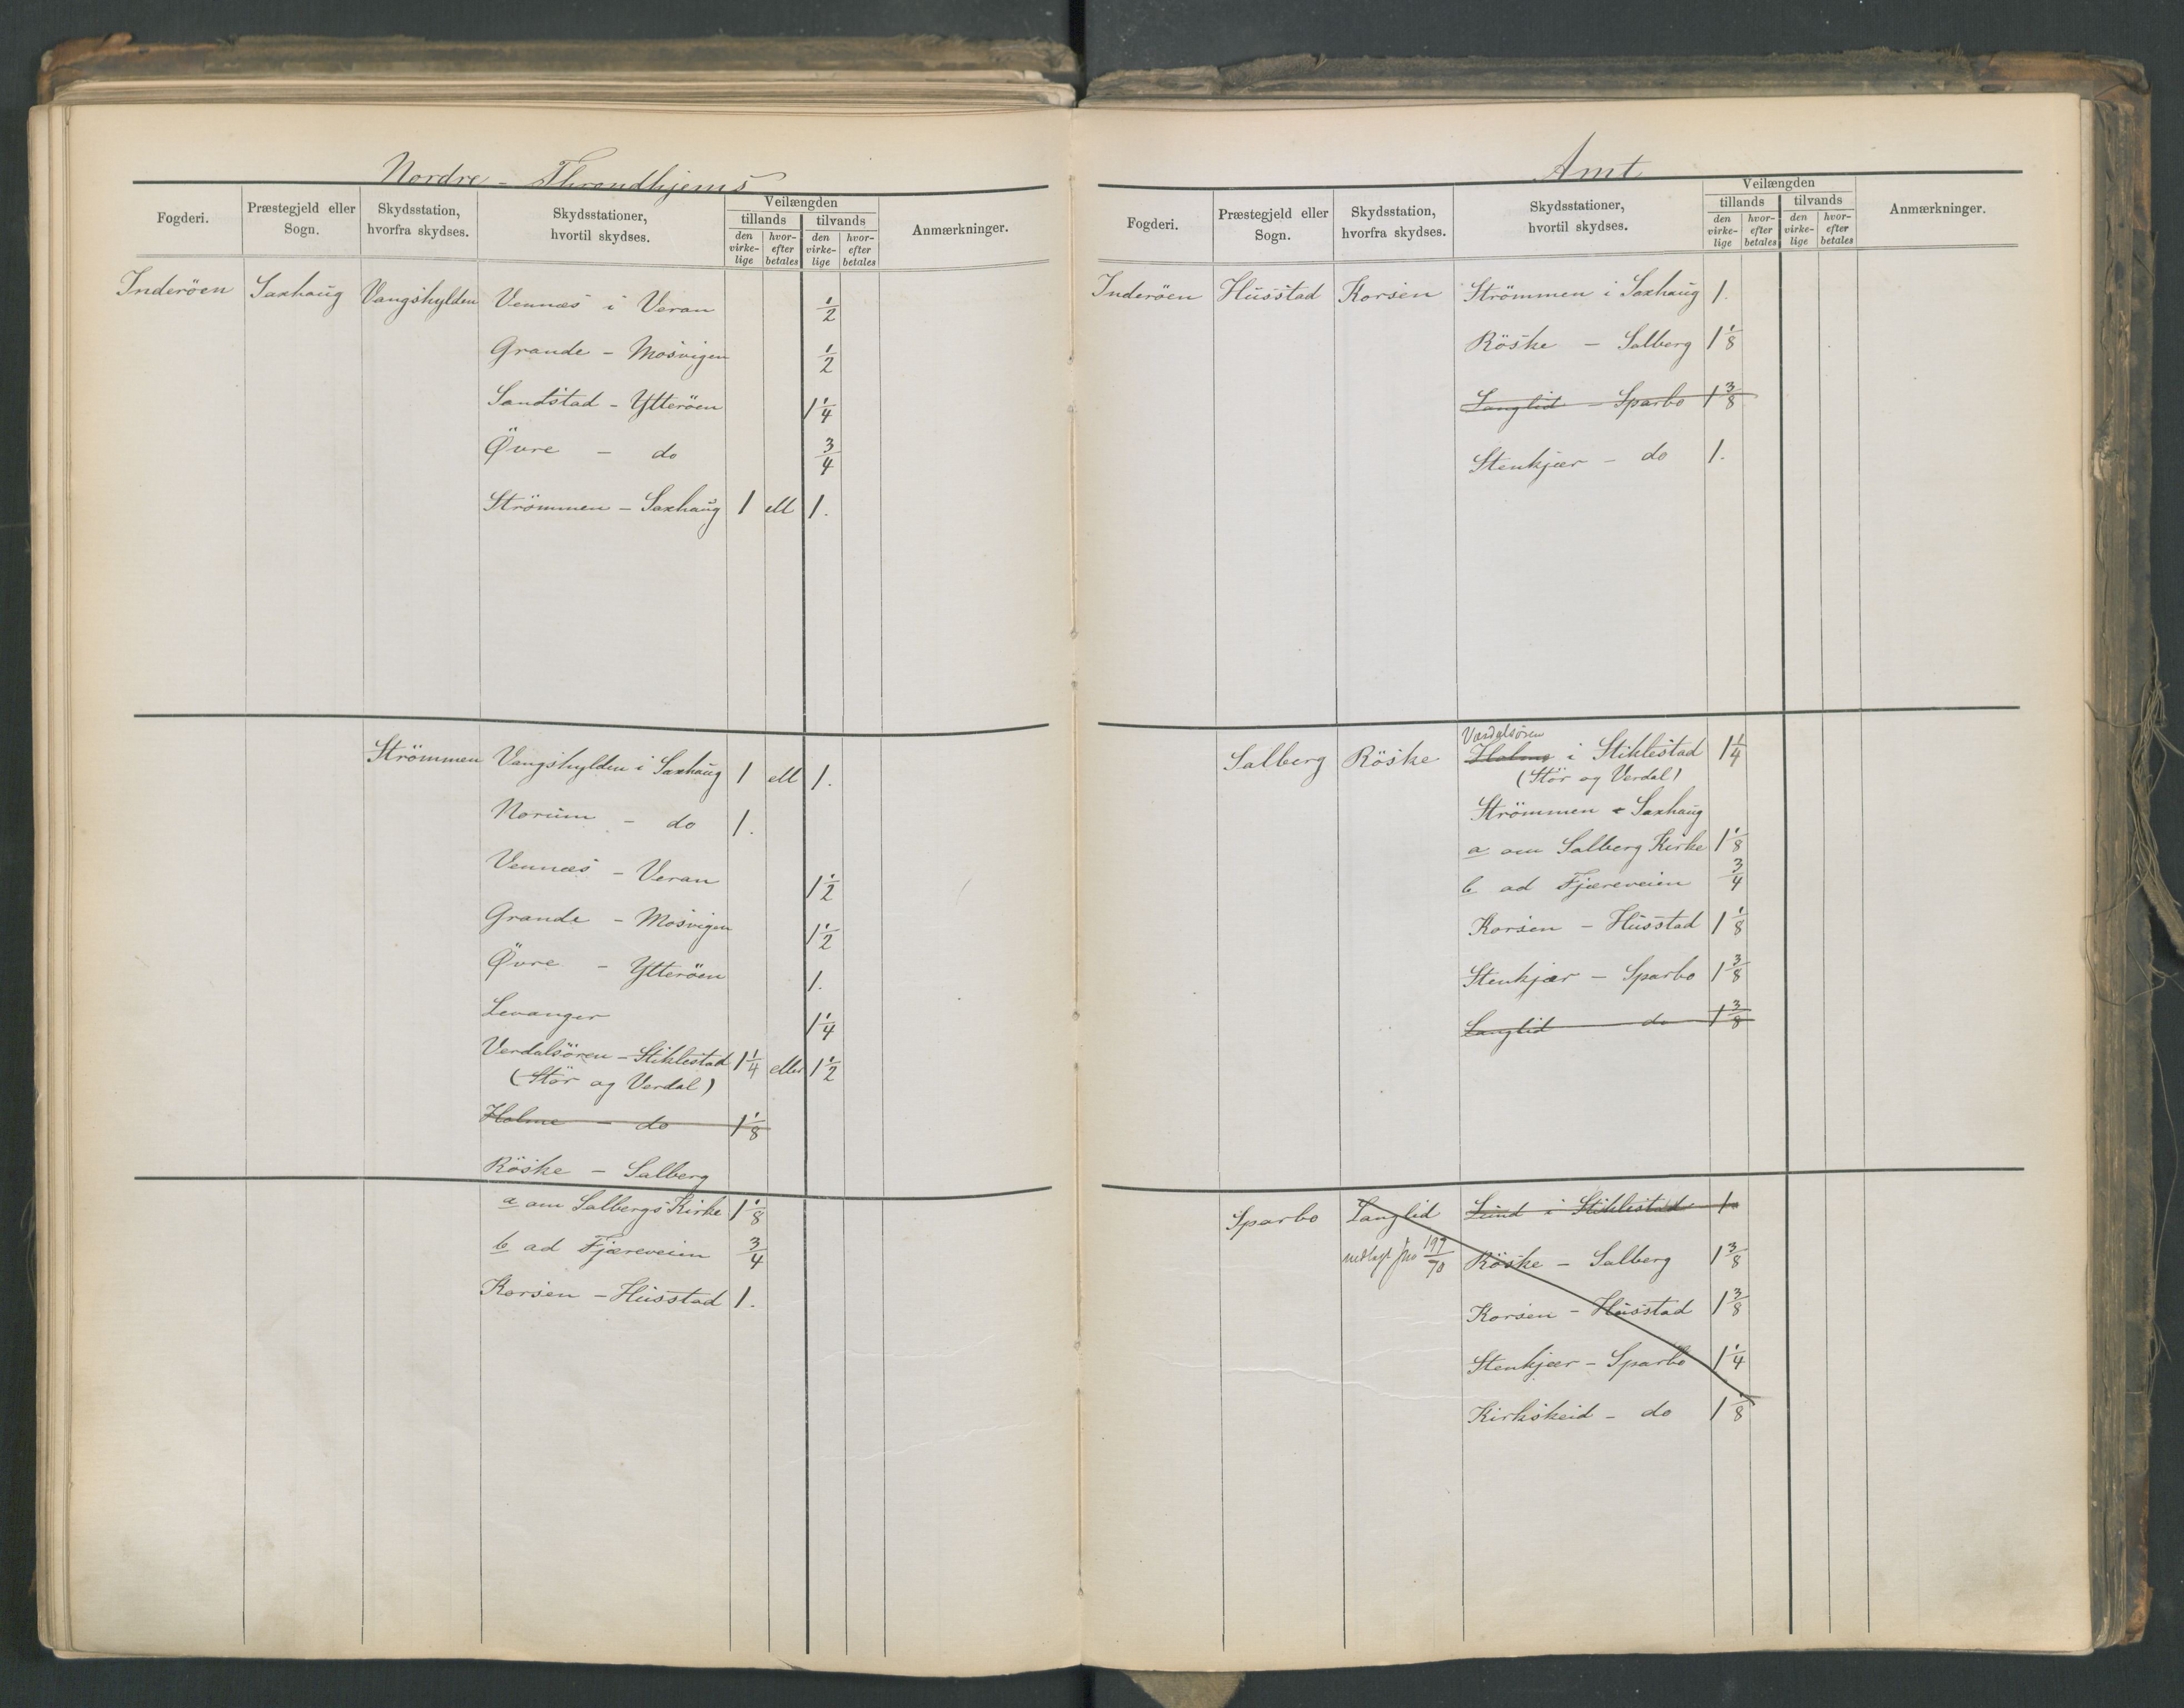 Nordre - Throndhjems
Fogderi. Præstegjeld eller Sogn. Skydsstation, hvorfra skydses. Skydsstationer, hvortil skydses. Veilængden Anmærkninger.
tillands tilvands
den virke-lige hvor-efter betales den virke-lige hvor-efter betales
Inderöen Saxhaug Vangshylden Vennæs i Veran 1/2
Grande - Mosvigen 1/2
Sandstad - Ytteröen 1 1/4
Øvre - do 3/4
Strömmen - Saxhaug 1 ell 1.
Strömmen Vangshylden i Saxhaug 1 ell 1.
Norum - do 1.
Vennæs - Veran 1 1/2
Grande - Mosvigen 1 1/2
Øvre - Ytteröen 1.
Levanger 1 1/4
Verdalsören - Stiklestad 1 1/4 eller 1 1/2
(Stör og Verdal)
Holme - do 1 1/8
Röske - Salberg
a om Salbergs Kirke 1 1/8
b ad Fjæreveien 3/4
Korsen - Husstad 1.
Amt
Fogderi. Præstegjeld eller Sogn. Skydsstation, hvorfra skydses. Skydsstationer, hvortil skydses. Veilængden Anmærkninger.
tillands tilvands
den virke-lige hvor-efter betales den virke-lige hvor-efter betales
Inderöen Husstad Korsen Strömmen i Saxhaug 1.
Röske - Salberg 1 1/8
Langlid - Sparbo 1 3/8
Stenkjær - do 1.
Værdalsören
Salberg Röske Holme i Stiklestad 1 1/4
(Stör og Verdal)
Strömmen - Saxhaug
a om Salberg Kirke 1 1/8
b ad Fjæreveien 3/4
Korsen - Husstad 1 1/8
Stenkjær - Sparbo 1 3/8
Langlid do 1 3/8
Sparbo Langlid Lund i Stiklestad 1
nedlagt fra 19/9 70 Röske - Salberg 1 3/8
Korsen - Husstad 1 3/8
Stenkjær - Sparbo 1 1/4
Kirkskeid - do 1 1/8